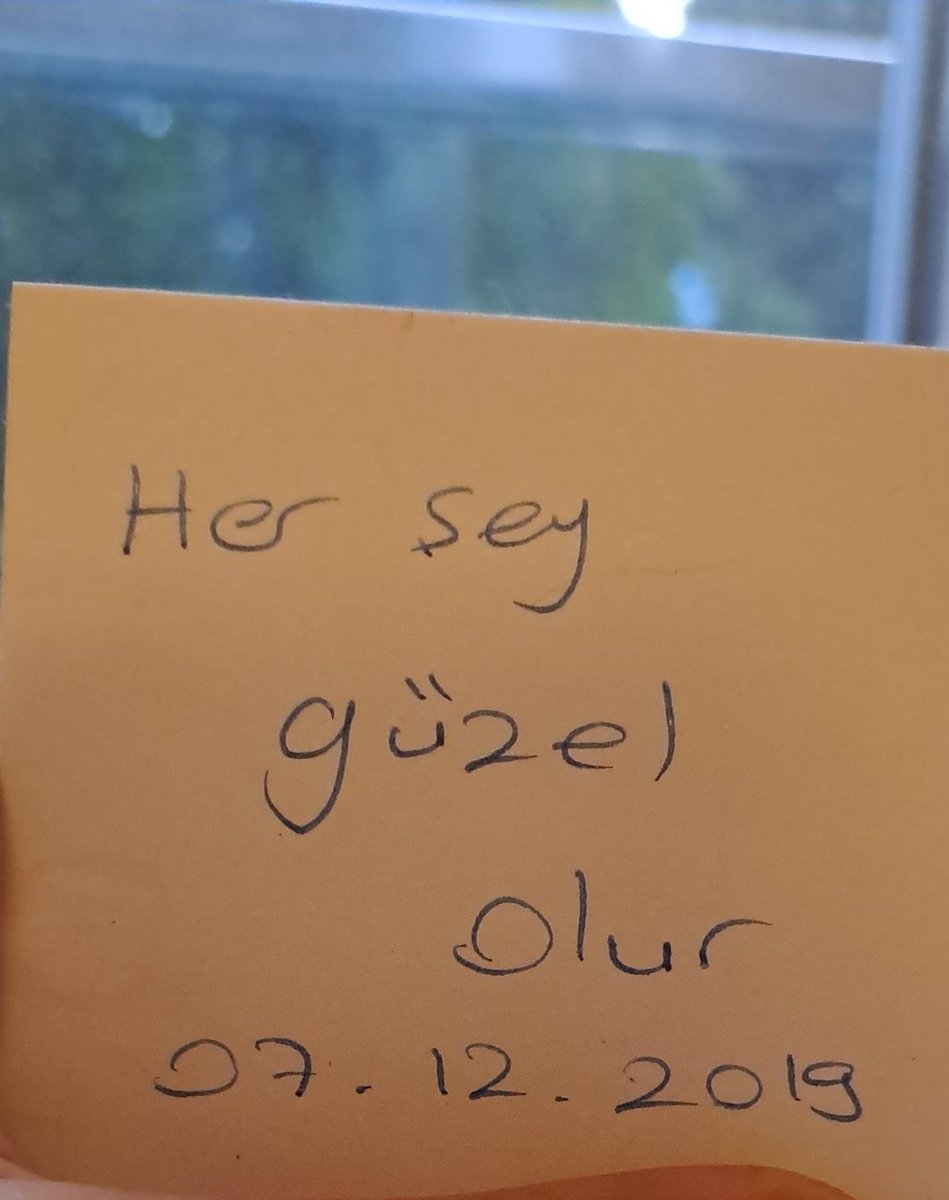 Her şey
güzel
olur
07.12.2019